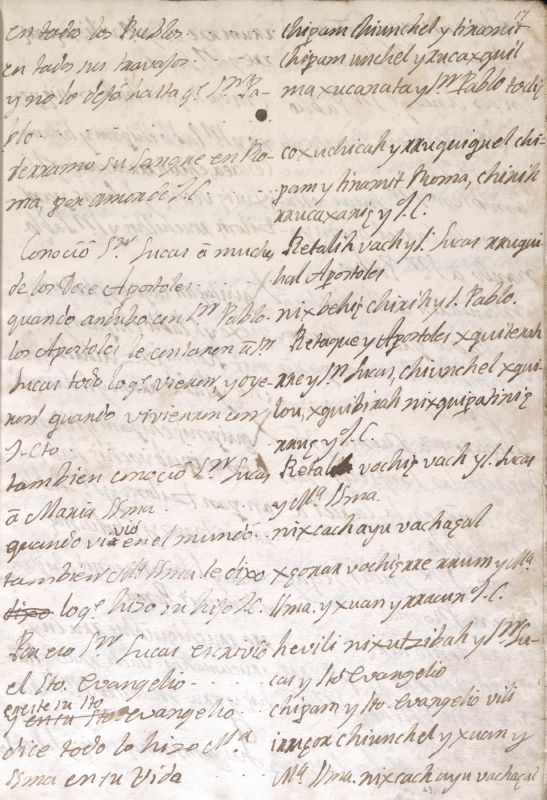 17
en todos los Pueblos.
en todos sus travajos.
y no lo dejó hasta q.e S.n Pa-
blo
derramó su Sangre en Ro-
ma, por amor de J.C.
Conoció S.n Lucas â muchos
de los Doce Apostoles.
quando andubo con S.n Pablo.
los Apostoles le contaron â S.n
Lucas todo lo q.e vieron, y oye-
ron quando vivieron con
J-Cto
tambien conoció S.n Lucas
â Maria Ssma.
quando vivió en el mundo.
tambien M.a Ssma le dixo
dixo lo q.e hizo su hijo J.C.
Por eso S.n Lucas escrivió
el Sto. evangelio.
y este su Sto
y en su Sto. evangelio
dice todo lo hizo M.a
Ssma en su Vida
chipam chiunchel y tinamit
chipam unchel y rucaxquil
maxucanata y S.n Pablo toq
coxuchicah y rruquiquel chi-
pam y tinamit Roma, chirih
rrucaxaniç y J.C.
Retalih vach y S. Lucas rruqui
hal Apostoles
nixbehiç chirih y S. Pablo.
Retaque y Apostoles xquiterah
rre y S.n Lucas, chiunchel xqui-
lou, xquibirah nixquipatiniç
rruç y J.C.
Retalih vochiç vach y S. Lucas
y M.a Ssma.
nixcachayu vachaçal
xçonan vochiç rre rrum y M.a
Ssma. y xuan y rracun J.C.
hevili nixutzibah y S.n Lu-
cas y Sto evangelio
chipam y Sto. evangelio vili
irruçon chiunchel y xuan y
M.a Ssma. nixcachayu vachaçal